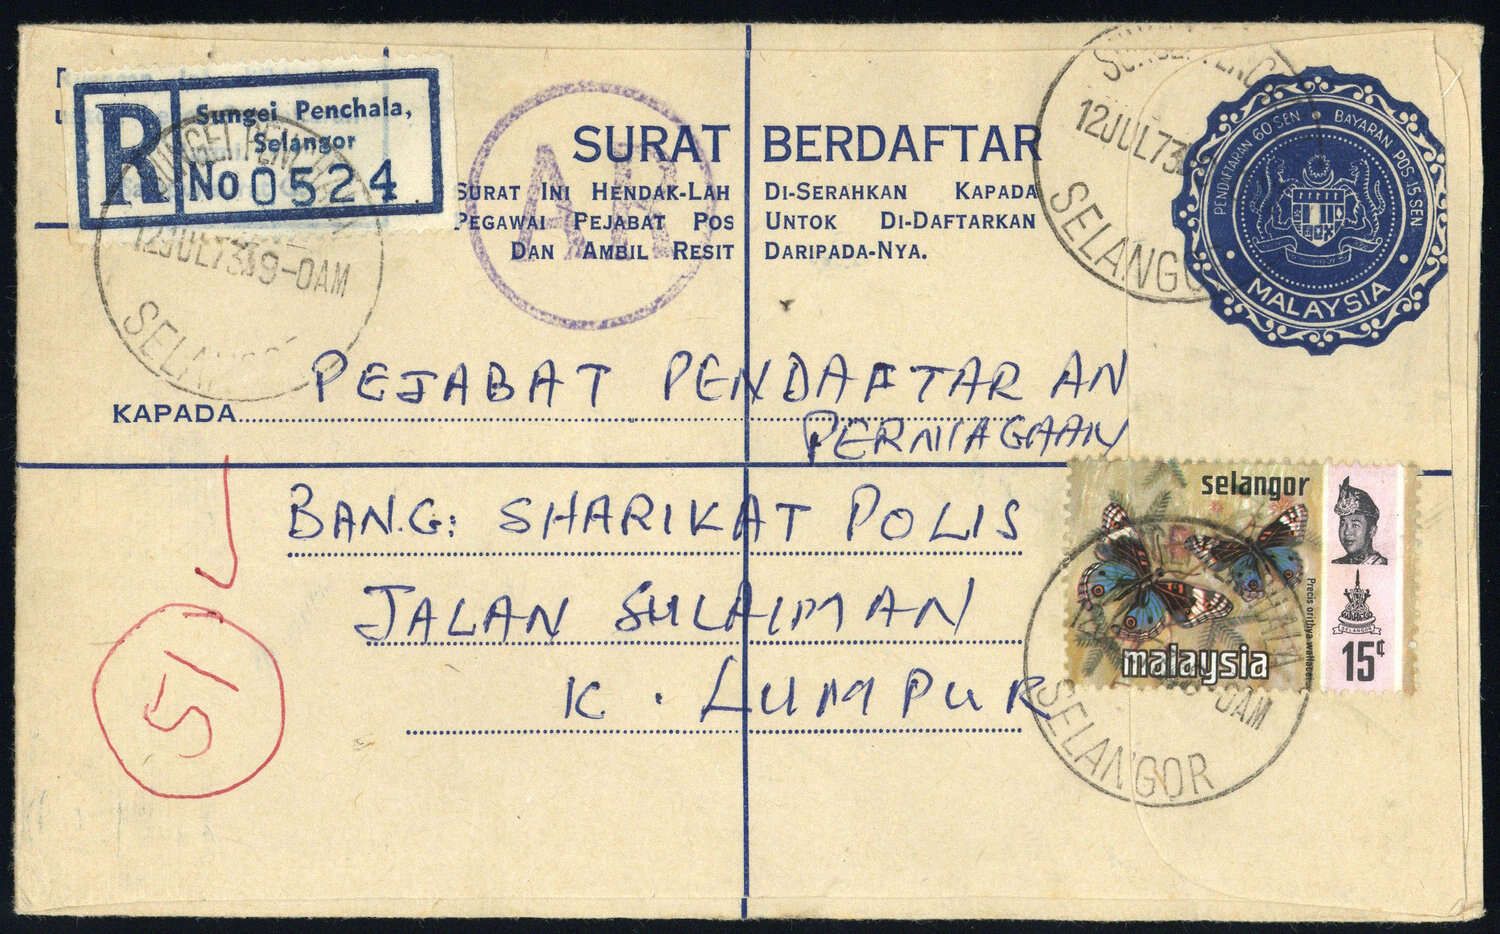 Sungei Penchala,
Selangor
R No 0524
SUNGEI PENCHALA
12JUL73 9-0AM
SELANGOR
AR
SURAT BERDAFTAR
SURAT INI HENDAK-LAH DI-SERAHKAN KAPADA
PEGAWAI PEJABAT POS UNTOK DI-DAFTARKAN
DAN AMBIL RESIT DARIPADA-NYA.
12JUL73
SELANGOR
PENDAFTARAN 60 SEN • BAYARAN POS 15 SEN
MALAYSIA
KAPADA PEJABAT PENDAFTARAN
PERNIAGAAN
BANG: SHARIKAT POLIS
JALAN SULAIMAN
K. LUMPUR
51
selangor
Precis orithya wallacei
malaysia
SELANGOR
15¢
0AM
SELANGOR